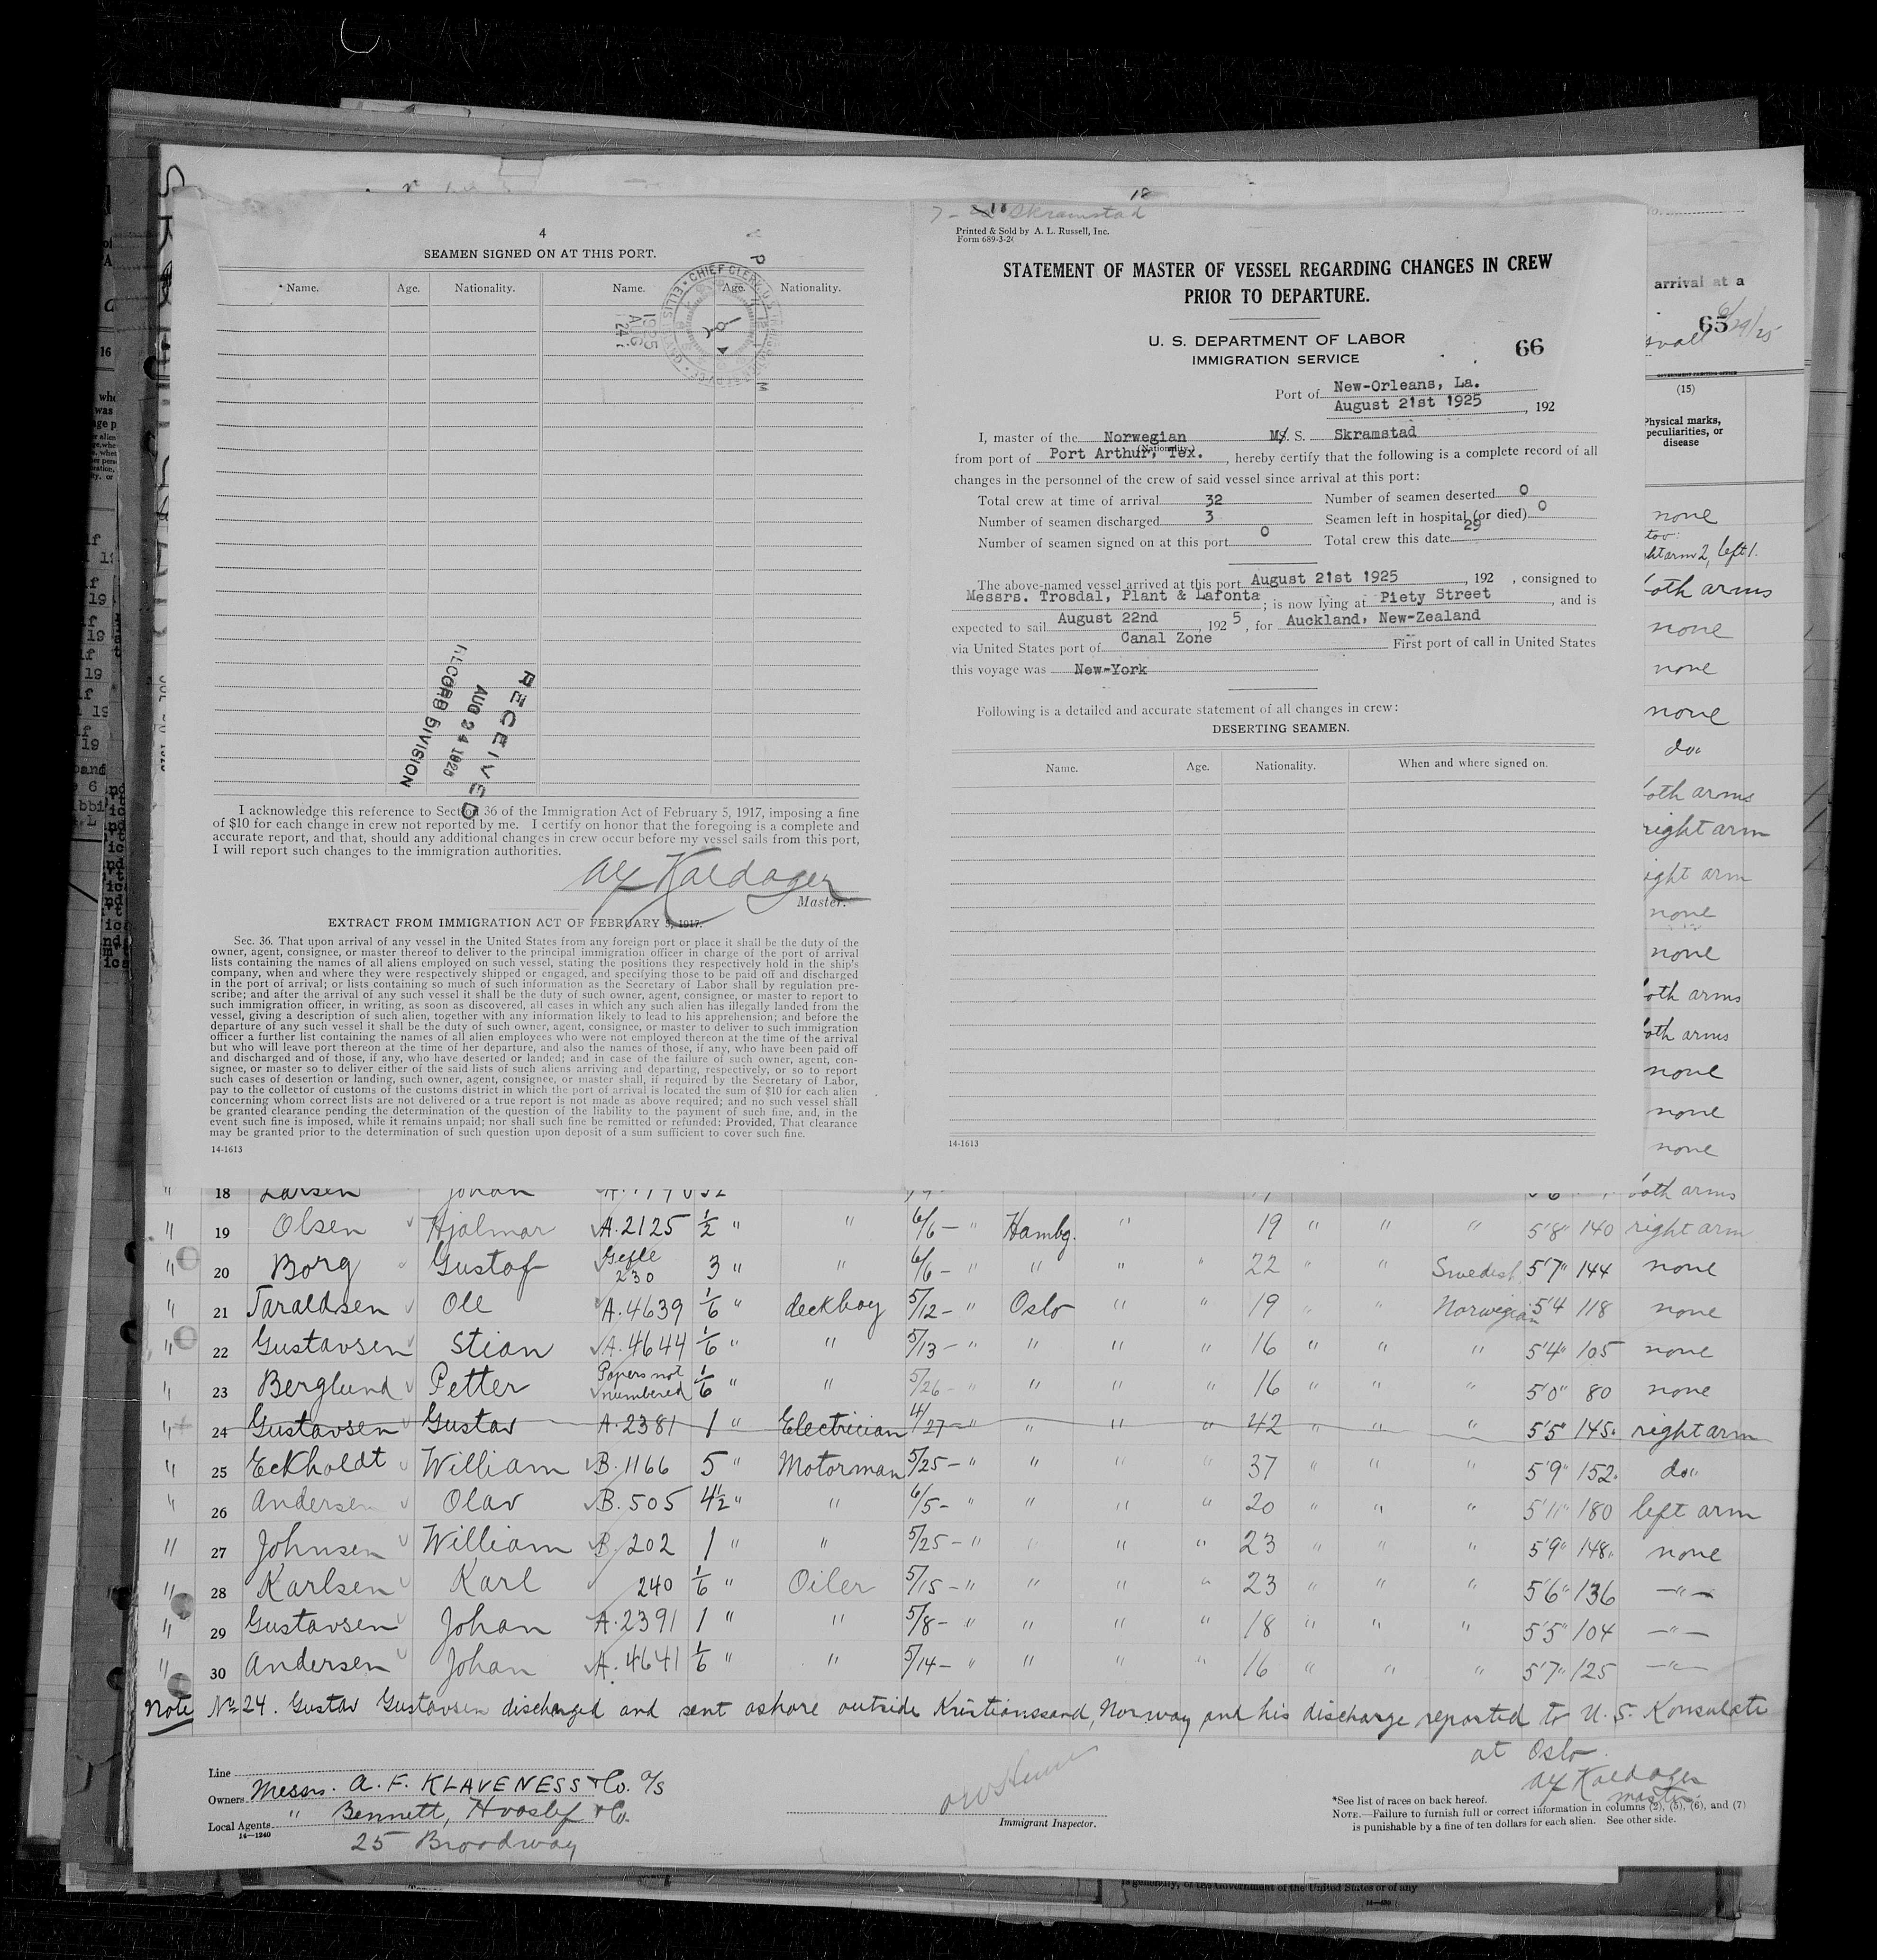 4
SEAMEN SIGNED ON AT THIS PORT.
Name. Age. Nationality. Name. Age. Nationality.
CHIEF CLERK
1925
AUG
24
RECEIVED
AUG 24 1925
RECORD DIVISION
I acknowledge this reference to Section 36 of the Immigration Act of February 5, 1917, imposing a fine
of $10 for each change in crew not reported by me. I certify on honor that the foregoing is a complete and
accurate report, and that, should any additional changes in crew occur before my vessel sails from this port,
I will report such changes to the immigration authorities.
Kaldager
Master.
EXTRACT FROM IMMIGRATION ACT OF FEBRUARY 5, 1917.
Sec. 36. That upon arrival of any vessel in the United States from any foreign port or place it shall be the duty of the
owner, agent, consignee, or master thereof to deliver to the principal immigration officer in charge of the port of arrival
lists containing the names of all aliens employed on such vessel, stating the positions they respectively hold in the ship's
company, when and where they were respectively shipped or engaged, and specifying those to be paid off and discharged
in the port of arrival; or lists containing so much of such information as the Secretary of Labor shall by regulation pre-
scribe; and after the arrival of any such vessel it shall be the duty of such owner, agent, consignee, or master to report to
such immigration officer, in writing, as soon as discovered, all cases in which any such alien has illegally landed from the
vessel, giving a description of such alien, together with any information likely to lead to his apprehension; and before the
departure of any such vessel it shall be the duty of such owner, agent, consignee, or master to deliver to such immigration
officer a further list containing the names of all alien employees who were not employed thereon at the time of the arrival
but who will leave port thereon at the time of her departure, and also the names of those, if any, who have been paid off
and discharged and of those, if any, who have deserted or landed; and in case of the failure of such owner, agent, con-
signee, or master so to deliver either of the said lists of such aliens arriving and departing, respectively, or so to report
such cases of desertion or landing, such owner, agent, consignee, or master shall, if required by the Secretary of Labor,
pay to the collector of customs of the customs district in which the port of arrival is located the sum of $10 for each alien
concerning whom correct lists are not delivered or a true report is not made as above required; and no such vessel shall
be granted clearance pending the determination of the question of the liability to the payment of such fine, and, in the
event such fine is imposed, while it remains unpaid; nor shall such fine be remitted or refunded: Provided, That clearance
may be granted prior to the determination of such question upon deposit of a sum sufficient to cover such fine.
14-1613
18
Skramstad
Printed & Sold by A. L. Russell, Inc.
Form 689-3-2
STATEMENT OF MASTER OF VESSEL REGARDING CHANGES IN CREW
PRIOR TO DEPARTURE.
U. S. DEPARTMENT OF LABOR
IMMIGRATION SERVICE
66
Port of New-Orleans, La.
August 21st 1925, 192
I, master of the Norwegian M/ S. Skramstad
(Nationality)
from port of Port Arthur, Tex., hereby certify that the following is a complete record of all
changes in the personnel of the crew of said vessel since arrival at this port:
Total crew at time of arrival 32 Number of seamen deserted 0
Number of seamen discharged 3 Seamen left in hospital (or died) 0
Number of seamen signed on at this port 0 Total crew this date 29
The above-named vessel arrived at this port August 21st 1925, 192 , consigned to
Messrs. Trosdal, Plant & Lafonta; is now lying at Piety Street, and is
expected to sail August 22nd, 1925, for Auckland, New-Zealand
via United States port of Canal Zone First port of call in United States
this voyage was New-York
Following is a detailed and accurate statement of all changes in crew:
DESERTING SEAMEN.
Name. Age. Nationality. When and where signed on.
14-1613
arrival at a
65
6/29/25
(15)
Physical marks,
peculiarities, or
disease
none
right arm 2, left 1.
both arms
none
none
none
do.
both arms
right arm
right arm
none
none
both arms
both arms
none
none
none
" 18 Larsen Johan both arms
" 19 Olsen Hjalmar A.2125 1/2 " " 6/6 - " Hambg. " 19 " " " 5'8" 140 right arm
" 20 Borg Gustaf Gefle 230 3 " " 6/6 - " " " " 22 " " Swedish 5'7" 144 none
" 21 Taraldsen Ole A.4639 1/6 " deckboy 5/12 - " Oslo " " 19 " " Norwegian 5'4 118 none
" 22 Gustavsen Stian A.4644 1/6 " " 5/13 - " " " " 16 " " " 5'4" 105 none
" 23 Berglund Petter Papers not numbered 1/6 " " 5/26 - " " " " 16 " " " 5'0" 80 none
" 24 Gustavsen Gustav A.2381 1 " Electrician 4/27 - " " " " 42 " " " 5'5" 145. right arm
" 25 Eckholdt William B.1166 5 " Motorman 5/25 - " " " " 37 " " " 5'9" 152. do"
" 26 Andersen Olav B.505 4½ " " 6/5 - " " " " 20 " " " 5'11" 180 left arm
" 27 Johnsen William B.202 1 " " 5/25 - " " " " 23 " " " 5'9" 148. none
" 28 Karlsen Karl 240 1/6 " Oiler 5/15 - " " " " 23 " " " 5'6" 136 -"-
" 29 Gustavsen Johan A.2391 1 " " 5/8 - " " " " 18 " " " 5'5" 104 -"-
" 30 Andersen Johan A.4641 1/6 " " 5/14 - " " " " 16 " " " 5'7" 125 -"-
Note No 24. Gustav Gustavsen discharged and sent ashore outside Kristianssand, Norway and his discharge reported to U. S. Konsulate
at Oslo.
Kaldager
master.
Line
Owners Messrs. A. F. KLAVENESS & Co. A/S
Local Agents " Bennett, Hvoslef & Co.
14-1240
25 Broadway
Immigrant Inspector.
*See list of races on back hereof.
NOTE.—Failure to furnish full or correct information in columns (2), (5), (6), and (7)
is punishable by a fine of ten dollars for each alien. See other side.
is generally, of the Government of the United States or of any